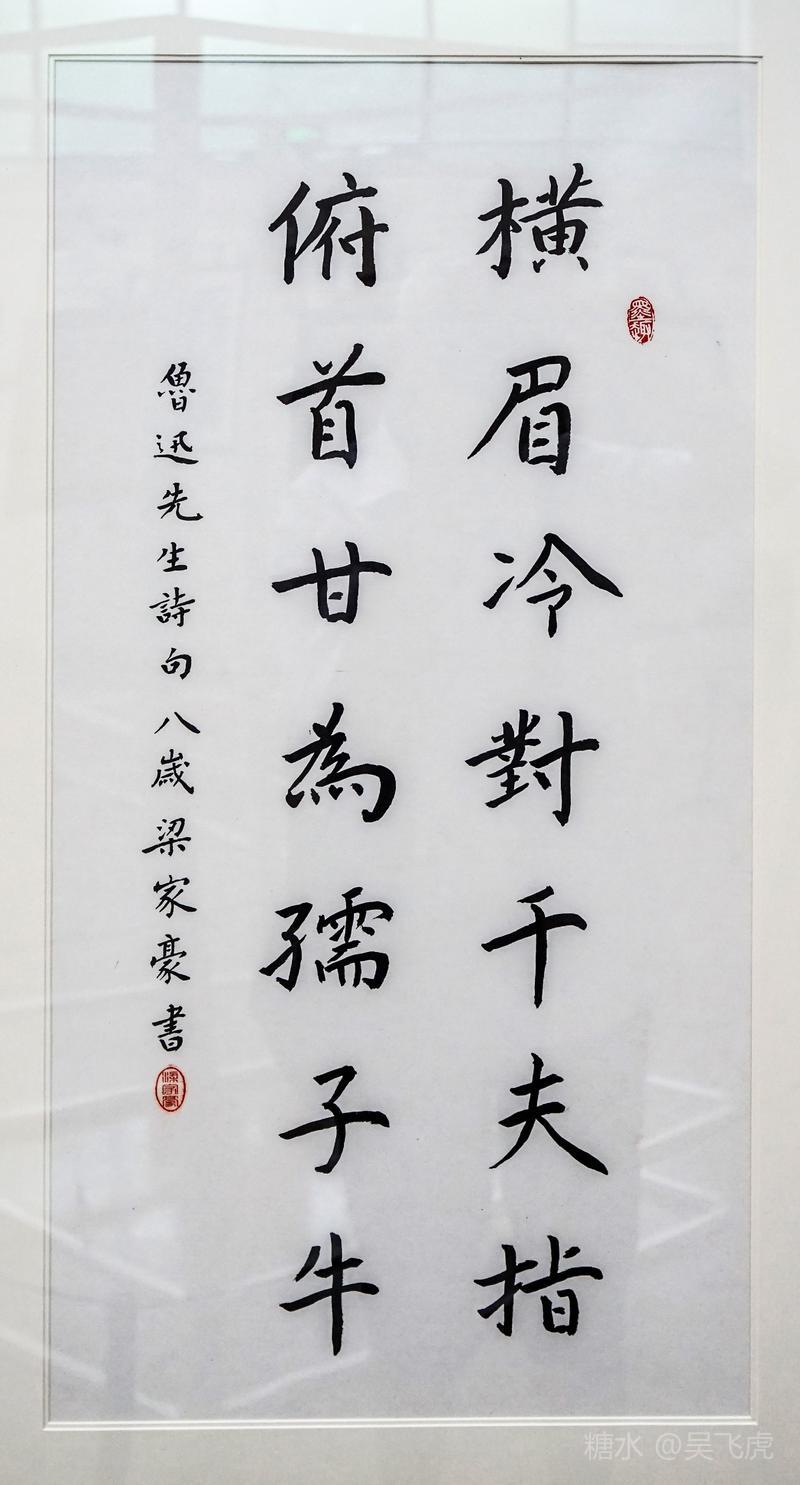 橫眉冷對千夫指
俯首甘為孺子牛
魯迅先生詩句八歲梁家豪書
墨趣
梁家豪
糖水 @吴飞虎